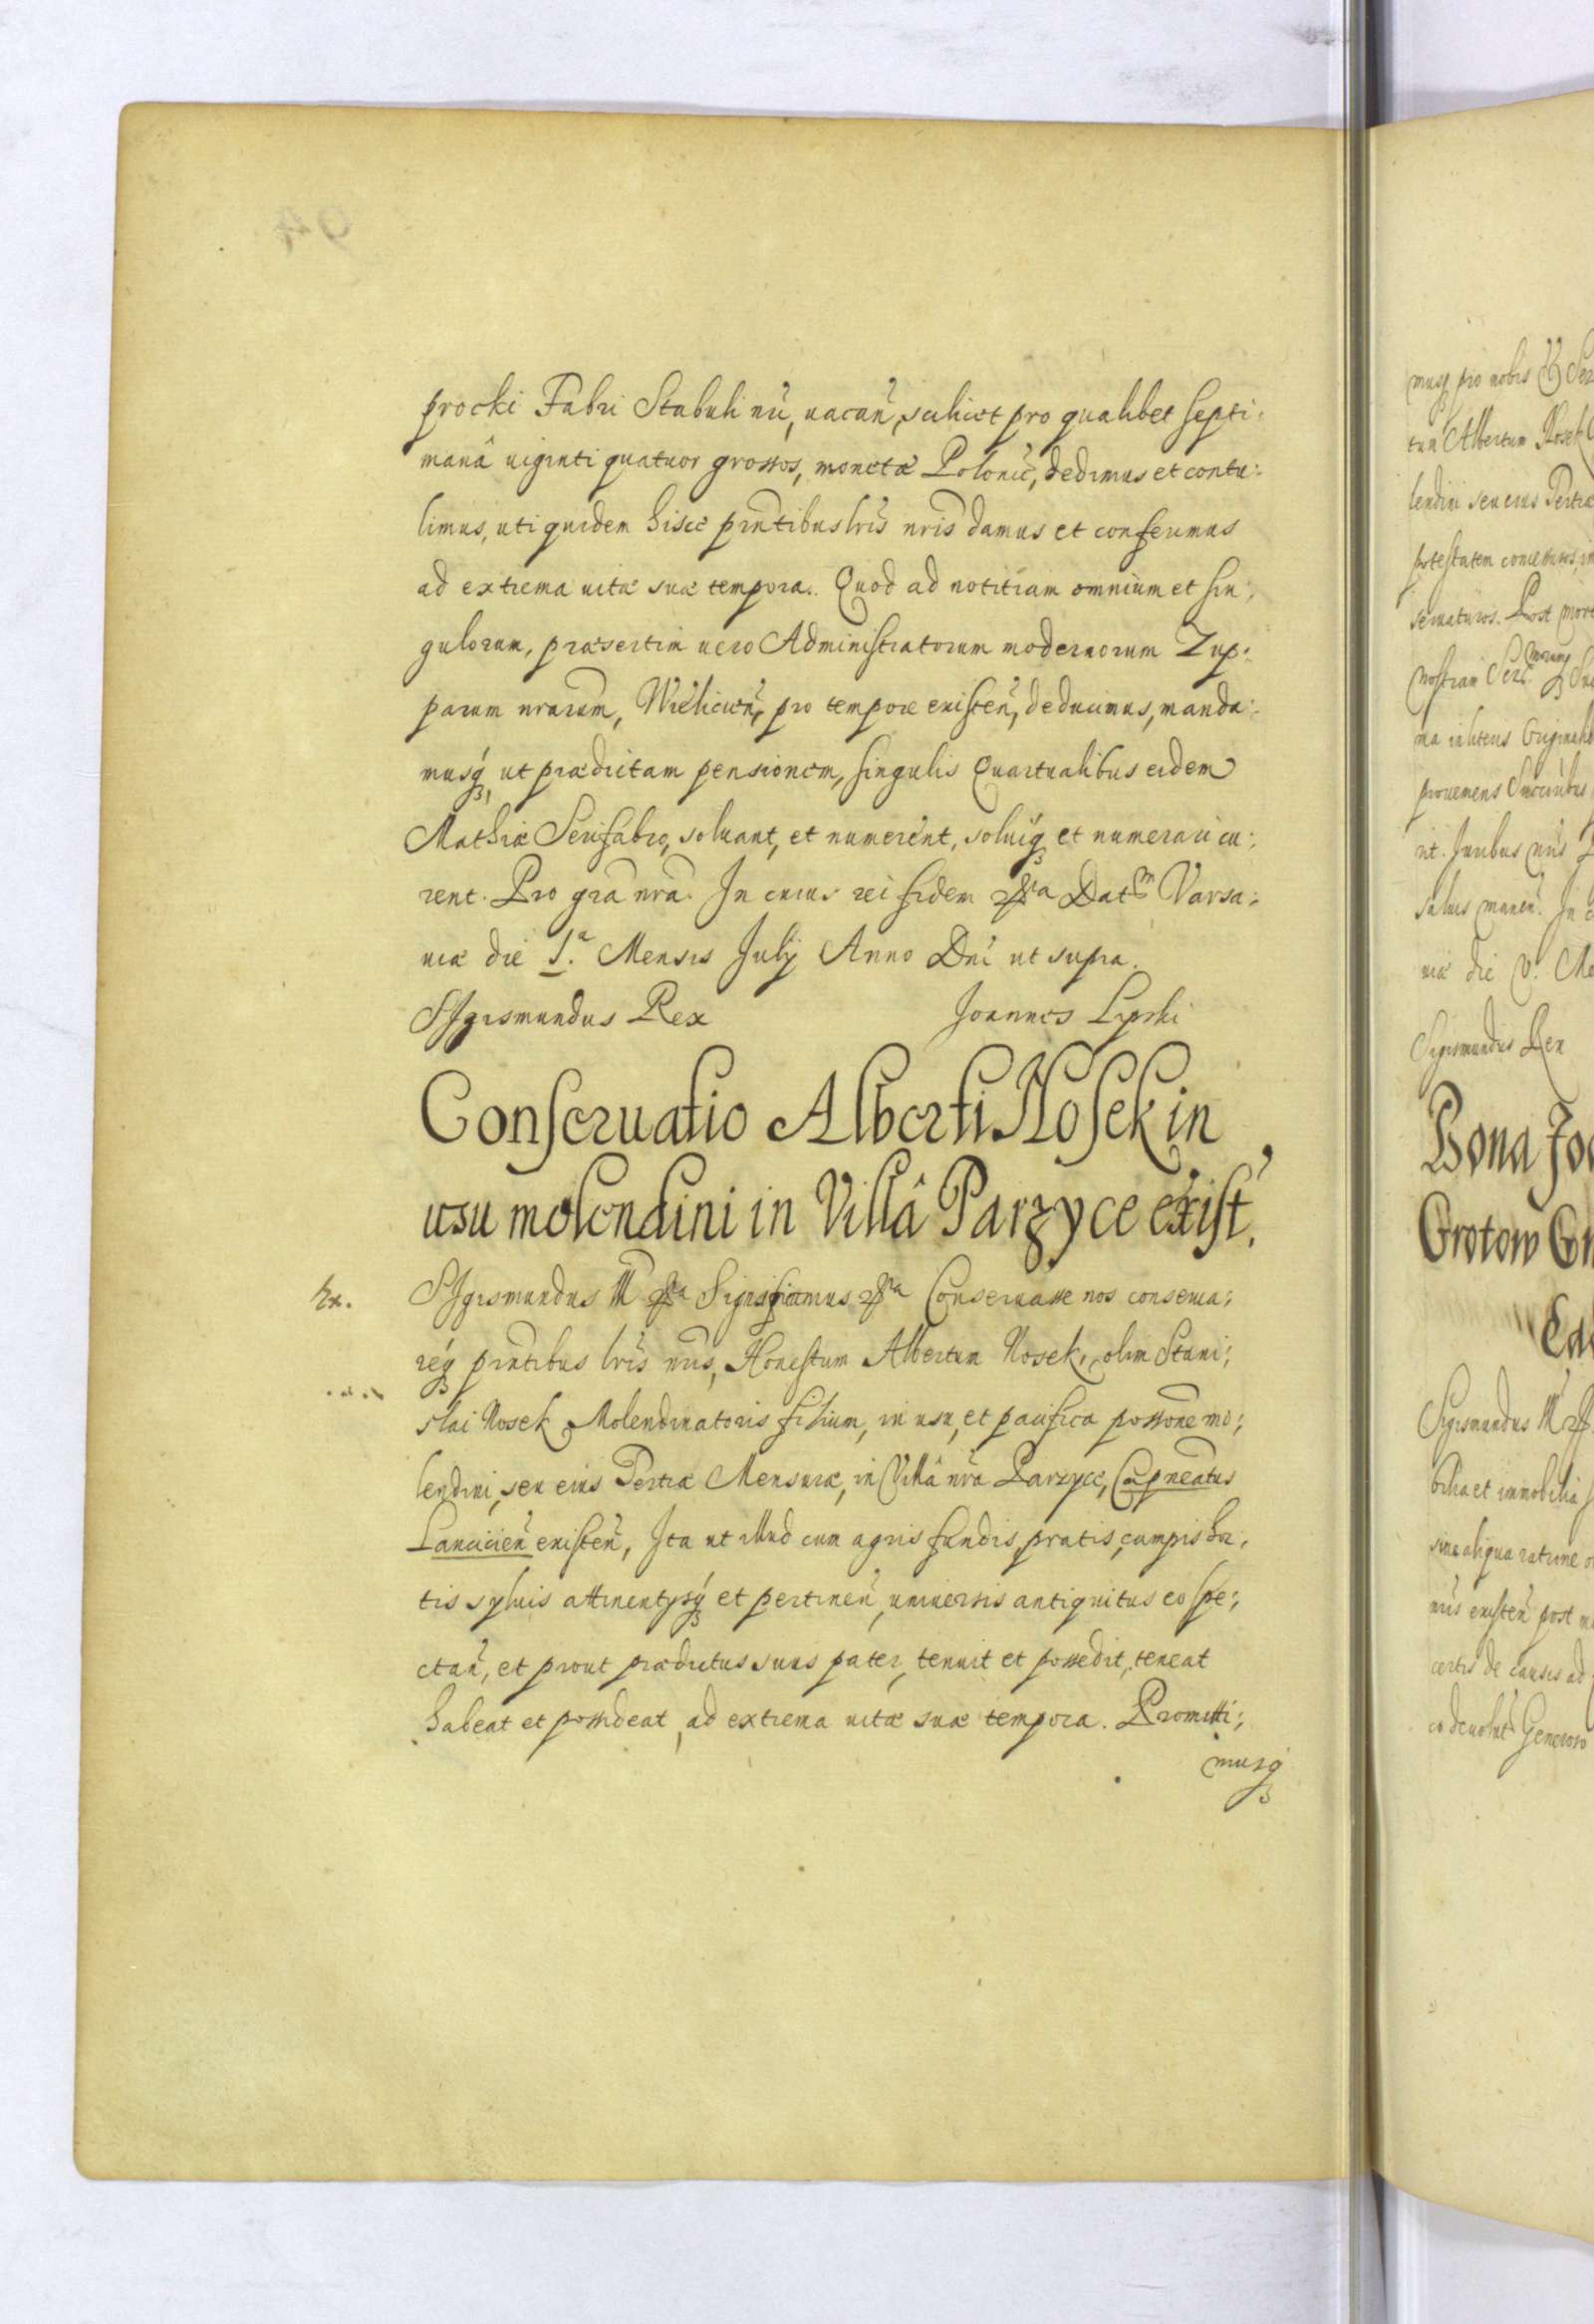 procki Fabri Stabuli nri, uacañ, scilicet pro qualibet septi:
manâ uiginti quatuor grossos, monetæ Polonic̃, dedimus et contu:
limus, uti quidem hisce pñtibus lris nris damus et conferimus
ad extrema uitæ suæ tempora. Quod ad notitiam omnium et sin:
gulorum, præsertim uero Administratorum modernorum Zup:
parum nrarum, Wielicień, pro tempore existeñ, deducimus, manda:
musq́, ut prædictam pensionem, singulis Quartualibus eidem
Mathiæ Serifabro, soluant, et numerent, soluiq́ et numerari cu:
rent. Pro gra nra. In cuius rei fidem &ra Datm Varsa:
uiæ die 1.a Mensis Julij Anno Dni ut supra.
Sigismundus Rex Joannes Lipski
Conseruatio Alberti Nosek in
usu molendini in Villâ Parzyce exist.
Ex.
Sigismundus III &ra Significamus &ra Conseruasse nos conserua:
req́ pñtibus lris nris, Honestum Albertum Nosek, olim Stani:
slai Nosek Molendinatoris filium, in usu, et pacifica possone mo:
lendini, seu eius Tertiæ Mensuræ, in Villâ nra Parzyce, Capneatus
Lancicieñ existeñ, Ita ut illud cum agris fundis, pratis, campis hor:
tis syluis attinentysq́ et pertineñ, uniuersis antiquitus eo spe:
ctañ, et prout prædictus suus pater, tenuit et possedit, teneat
habeat et possideat, ad extrema uitæ suæ tempora. Promitti:
musq́
musq́ pro nobis
tum Albertum Nosek
lendini seu eius Tertiæ
potestatem
seruaturos. Post
nostram
ma in literis Originalib
prouemens
nt. Juribus nris
saluis maneñ. In
uiæ die V.
Sigismundus Rex
Bona
Grotow
Sigismundus III
bilia et immobilia
sine aliqua ratione
nris existeñ post
certis de causis ad
Generoso